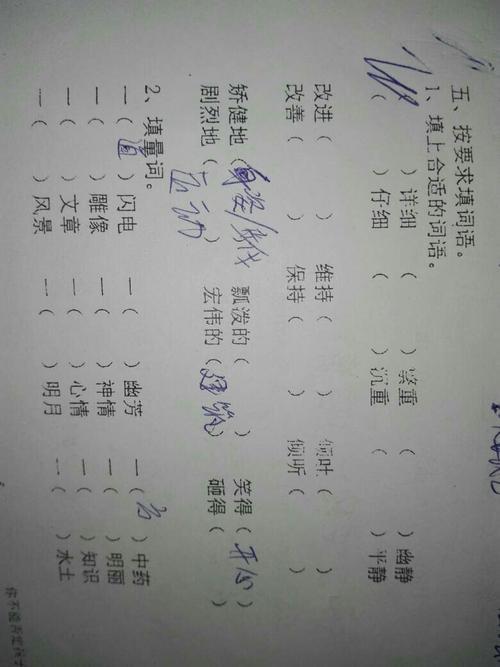 五、按要求填词语。
1、填上合适的词语。
(  )详细 (  )繁重 (  )幽静
(  )仔细 (  )沉重 (  )平静
改进(  ) 维持(  ) 倾吐(  )
改善(  ) 保持(  ) 倾听(  )
矫健地(身姿/步伐) 飘泼的(  ) 笑得(开心)
剧烈地(运动) 宏伟的(建筑) 砸得(  )
2、填量词。
一(道)闪电 一(  )幽芳 一(  )中药
一(  )雕像 一(  )神情 一(  )明丽
一(  )文章 一(  )心情 一(  )知识
一(  )风景 一(  )明月 一(  )水土
你不能否定孩